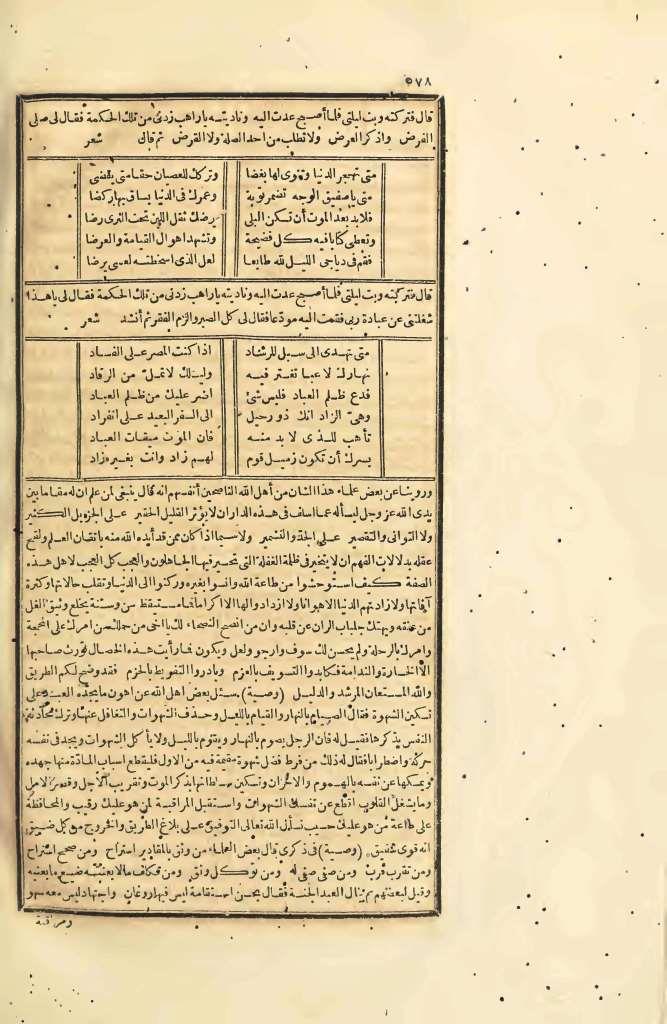 ٥٧٨
قال فتركته وبت ليلتي فلما أصبح عدت اليه وناديته يا راهب زدني من تلك الحكمة فقال لي صلى
الفرض واذكر العرض ولا تطلب من أحد الصلة ولا القرض ثم قال شعر
متى تهجر الدنيا وتنوى لها بغضا وتركك للعصيان حقا متى يقضى
متى يا صفيق الوجه تضمر توبة وعمرك في الدنيا يساق بها ركضا
فلا بد بعد الموت أن تسكن البلى يرضك ثقل اللبن تحت الثرى رضا
وتعطى كتابا فيه كل فضيحة وتشهد اهوال القيامة والعرضا
فقم في دياجي الليل لله طائعا لعل الذي اسخطته لعسى يرضا
قال فتركته وبت ليلتي فلما أصبح عدت اليه وناديته يا راهب زدني من تلك الحكمة فقال لي يا هذا
شغلتني عن عبادة ربي فقمت اليه مودعا فقال لي كل الصبر والزم الفقر ثم أنشد شعر
متى تهدى الى سبيل الرشاد اذا كنت المصر على الفساد
نهارك لاعبا تغتر فيه وليلك لا تمل من الرقاد
فدع ظلم العباد فليس شئ اضر عليك من ظلم العباد
وهئ الزاد انك ذو رحيل الى السفر البعيد على انفراد
تأهب للذى لا بد منه فان الموت ميقات العباد
يسرك أن تكون زميل قوم لهم زاد وانت بغير زاد
وروينا عن بعض علماء هذا الشان من أهل الله الناصحين أنفسهم انه قال ينبغي لمن علم ان له مقاما بين
يدى الله عز وجل ليسأله عما اسلف في هذه الدار ان لا يؤثر القليل الحقير على الجزيل الكثير
ولا التوانى والتقصير على الجد والتشمير ولا سيما اذا كان ممن قد أيده الله منه باتقان العلم ولقيح
عقله بدلالات الفهم ان لا يتحير في ظلمة الغفلة التي تحير فيها الجاهلون والعجب كل العجب لاهل هذه
الصفة كيف استوحشوا من طاعة الله وانسوا بغيره وركنوا الى الدنيا وتقلب حالاتها وكثرة
آفاتها ولا زادتهم الدنيا الا هوانا ولا ازدادوا لها الا اكراما فما مستيقظ من وسنة يخلع وثيق الغل
من عنقه ويهتك جلباب الران عن قلبه وان من انصح النصحاء لك يا اخي من حملك من امرك على المحجة
وامرك بالرحلة ولم يحسن لك سوف وارجو ولعل ويكون فما رأيت هذه الخصال تورث صاحبها
الا الخسارة والندامة فكابدوا التسويف بالعزم وبادروا التفريط بالحزم فقد وضح لكم الطريق
والله المستعان المرشد والدليل (وصية) سئل بعض اهل الله عن اهون ما يجده العبد على
تسكين الشهوة فقال الصيام بالنهار والقيام بالليل وحذف الشهوات والتغافل عنها وترك محادثة
النفس بذكرها فقيل له فان الرجل يصوم بالنهار ويقوم بالليل ولا يأكل الشهوات ويجد في نفسه
حركة واضطرابا فقال له ذلك من فرط فضل شهوة مقيمة فيه من الاول فليقطع اسباب المادة منها جهده
ويمسكها عن نفسه بالهموم والاحزان وتسكين سلطانها بذكر الموت وتقريب الاجل وقصر الامل
وما يشغل القلوب اقطع عن نفسك الشهوات واستقبل المراقبة لمن هو عليك رقيب والمحافظة
على طاعة من هو عليك حسيب نسأل الله تعالى التوفيق على بلاغ الطريق والخروج من كل ضيق
انه قوى شفيق (وصية) في ذكرى قال بعض العلماء من وثق بالمقادير استراح ومن صحح استراح
ومن تقرب قرب ومن صفى صفى له ومن توكل وثق ومن تكلف ما لا يعنيه ضيع ما يعنيه
وقيل لبعضهم بم ينال العبد الجنة فقال بحسن استقامة ليس فيها روغان واجتهاد ليس معه سهو
ومراقبة